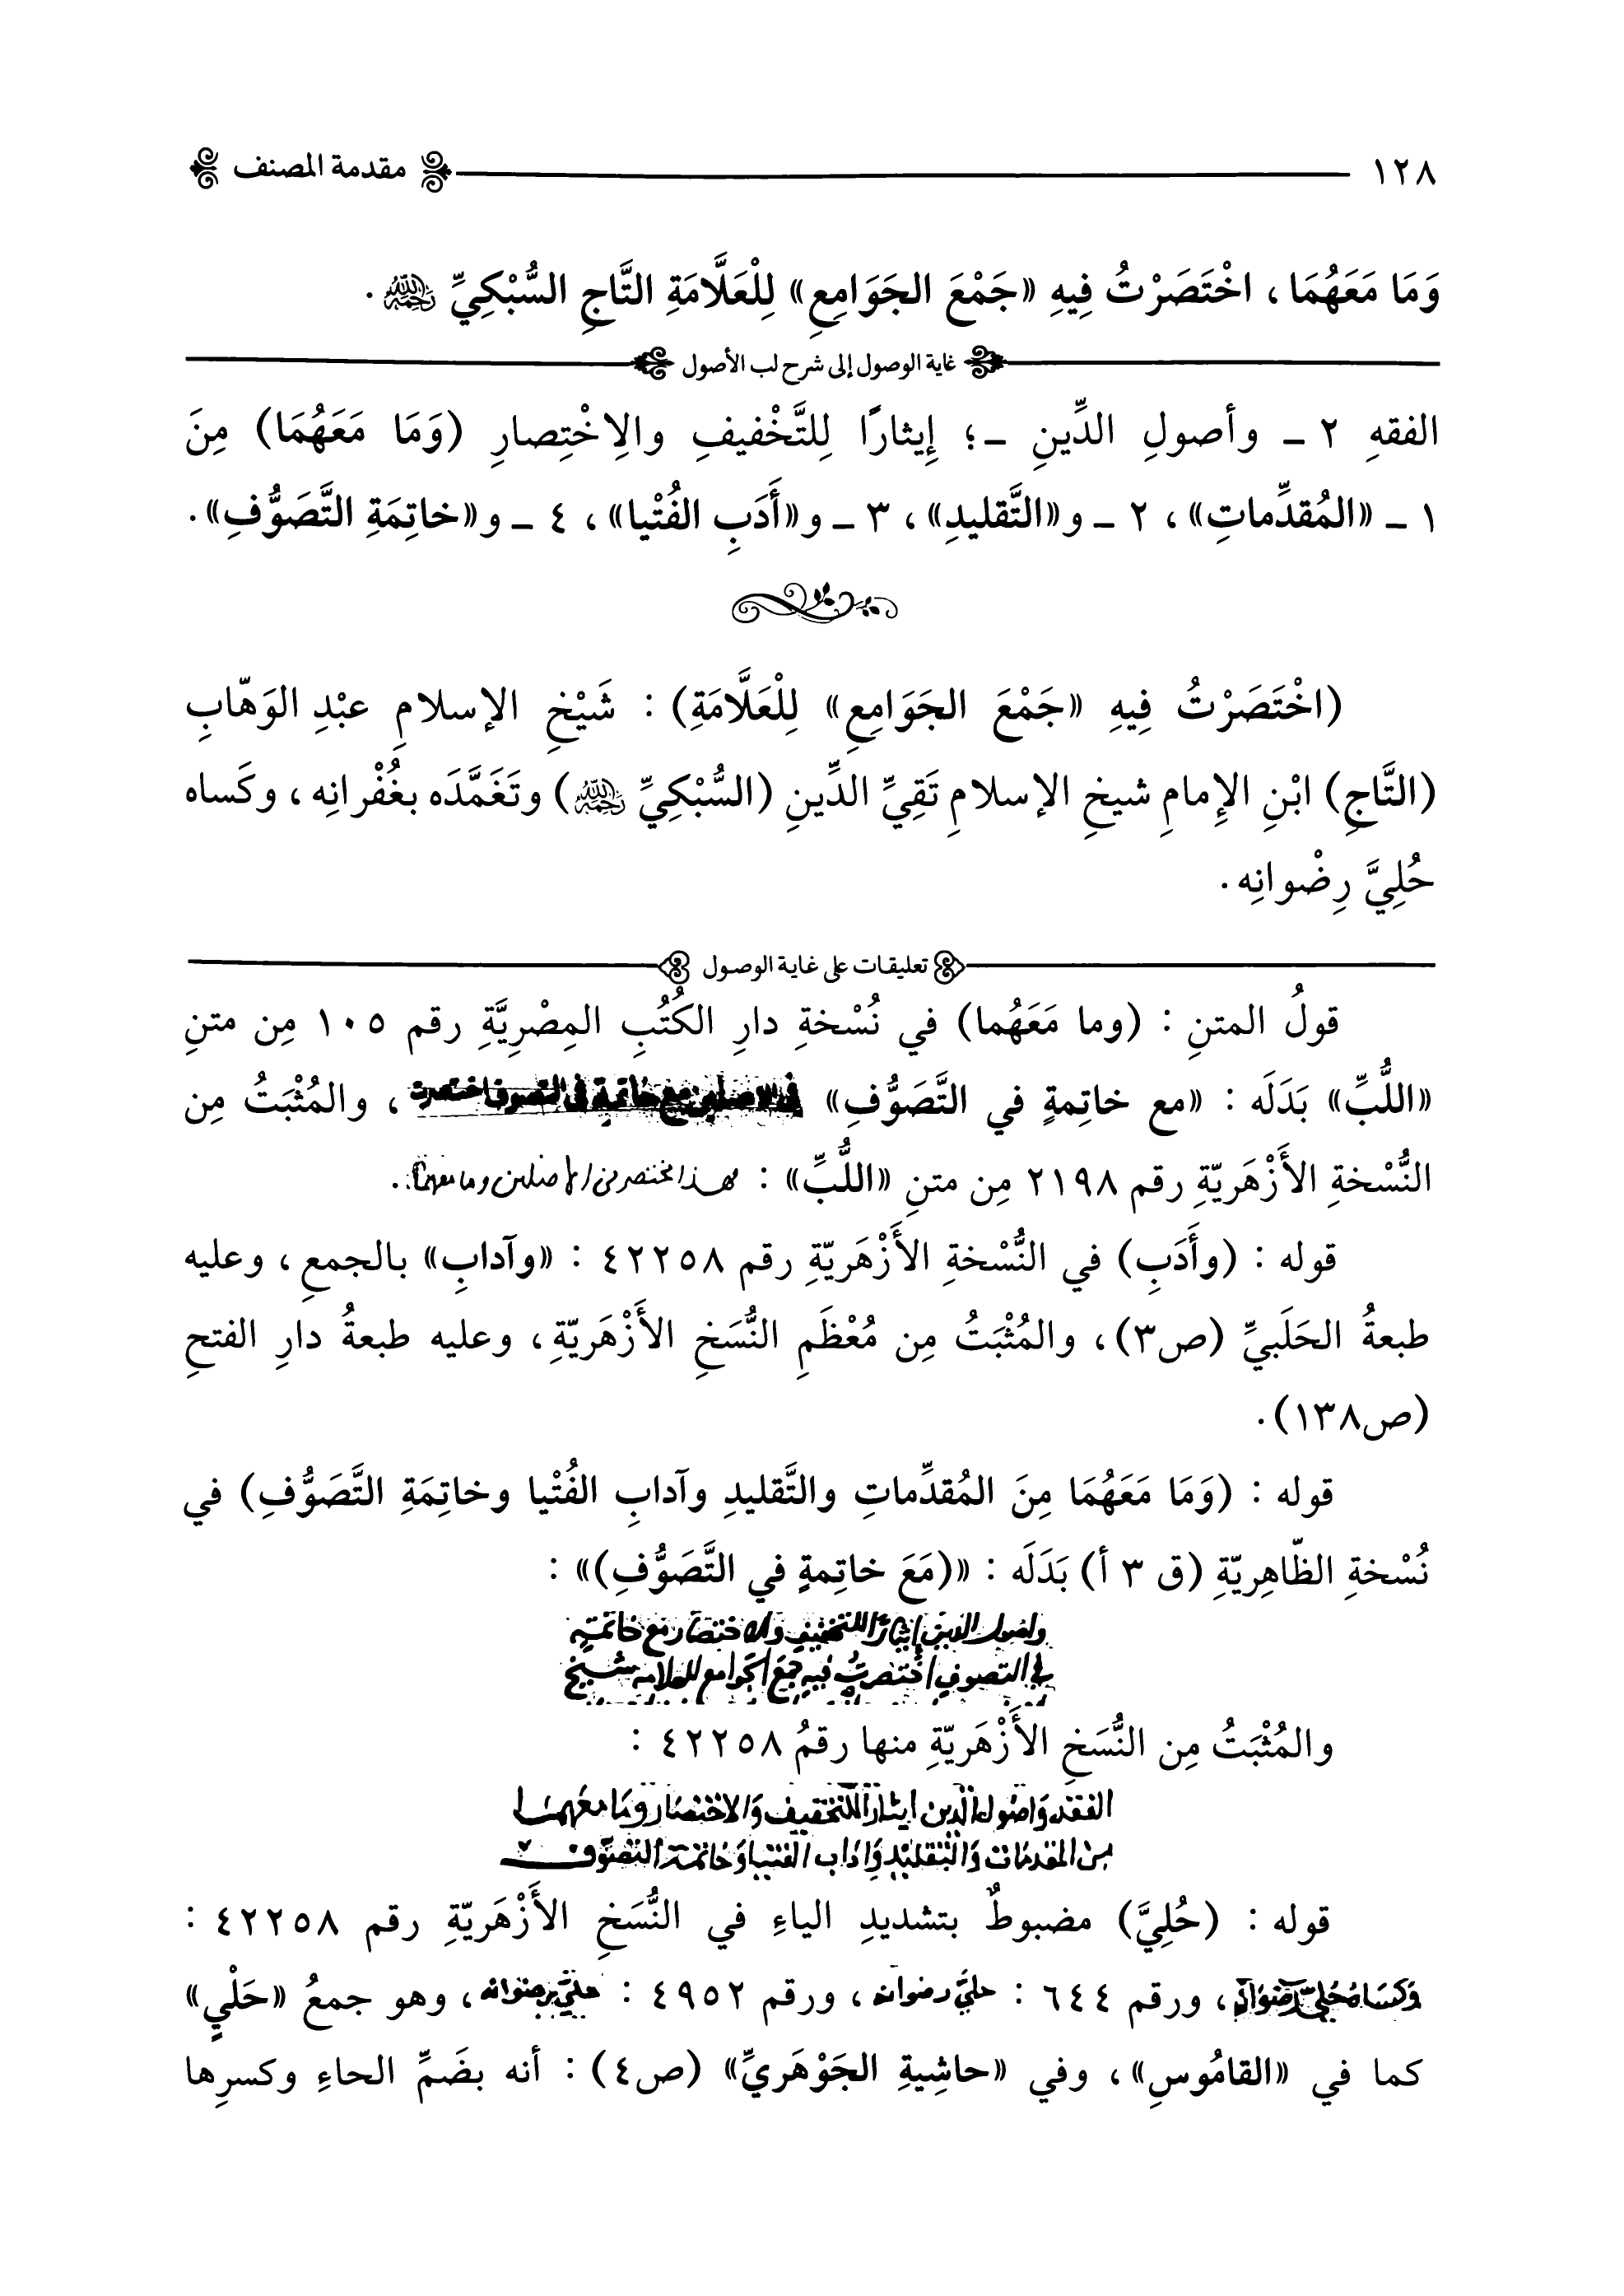 ١٢٨ مقدمة المصنف
وَمَا مَعَهُمَا، اخْتَصَرْتُ فِيهِ «جَمْعَ الجَوَامِعِ» لِلْعَلَّامَةِ التَّاجِ السُّبْكِيِّ رَحِمَهُ اللهُ.
غاية الوصول إلى شرح لب الأصول
الفقهِ ٢ ـ وأصولِ الدِّينِ ـ؛ إِيثارًا لِلتَّخْفيفِ والِاخْتِصارِ (وَمَا مَعَهُمَا) مِنَ
١ ـ «المُقدِّماتِ»، ٢ ـ و«التَّقليدِ»، ٣ ـ و«أَدَبِ الفُتْيا»، ٤ ـ و«خاتِمَةِ التَّصَوُّفِ».
(اخْتَصَرْتُ فِيهِ «جَمْعَ الجَوَامِعِ» لِلْعَلَّامَةِ): شَيْخِ الإسلامِ عبْدِ الوَهّابِ
(التَّاجِ) ابْنِ الإِمامِ شيخِ الإسلامِ تَقِيِّ الدِّينِ (السُّبْكِيِّ رَحِمَهُ اللهُ) وتَغَمَّدَه بغُفْرانِه، وكَساه
حُلِيَّ رِضْوانِه.
تعليقات على غاية الوصول
قولُ المتنِ: (وما مَعَهُما) في نُسْخةِ دارِ الكُتُبِ المِصْرِيَّةِ رقم ١٠٥ مِن متنِ
«اللُّبِّ» بَدَلَه: «مع خاتِمةٍ في التَّصَوُّفِ» في الاصلين مع خاتمة في التصوف اختصرت، والمُثْبَتُ مِن
النُّسْخةِ الأَزْهَريّةِ رقم ٢١٩٨ مِن متنِ «اللُّبِّ»: فهذا مختصر في الاصلين وما معهما.
قوله: (وأَدَبِ) في النُّسْخةِ الأَزْهَريّةِ رقم ٤٢٢٥٨: «وآدابِ» بالجمعِ، وعليه
طبعةُ الحَلَبيِّ (ص٣)، والمُثْبَتُ مِن مُعْظَمِ النُّسَخِ الأَزْهَريّةِ، وعليه طبعةُ دارِ الفتحِ
(ص١٣٨).
قوله: (وَمَا مَعَهُمَا مِنَ المُقدِّماتِ والتَّقليدِ وآدابِ الفُتْيا وخاتِمَةِ التَّصَوُّفِ) في
نُسْخةِ الظّاهِريّةِ (ق ٣ أ) بَدَلَه: «(مَعَ خاتِمةٍ في التَّصَوُّفِ)»:
واصول الدين إيثارا للتخفيف والاختصار مع خاتمة
في التصوف اختصرت فيه جمع الجوامع للعلامة شيخ
والمُثْبَتُ مِن النُّسَخِ الأَزْهَريّةِ منها رقمُ ٤٢٢٥٨:
الفقه واصول الدين ايثارا للتخفيف والاختصار وما معهما
من المقدمات والتقليد واداب الفتيا وخاتمة التصوف
قوله: (حُلِيَّ) مضبوطٌ بتشديدِ الياءِ في النُّسَخِ الأَزْهَريّةِ رقم ٤٢٢٥٨:
وكساه حلي رضوانه، ورقم ٦٤٤: حليَّ رضوانه، ورقم ٤٩٥٢: حليَّ رضوانه، وهو جمعُ «حَلْيٍ»
كما في «القامُوسِ»، وفي «حاشِيةِ الجَوْهَريِّ» (ص٤): أنه بضَمِّ الحاءِ وكسرِها